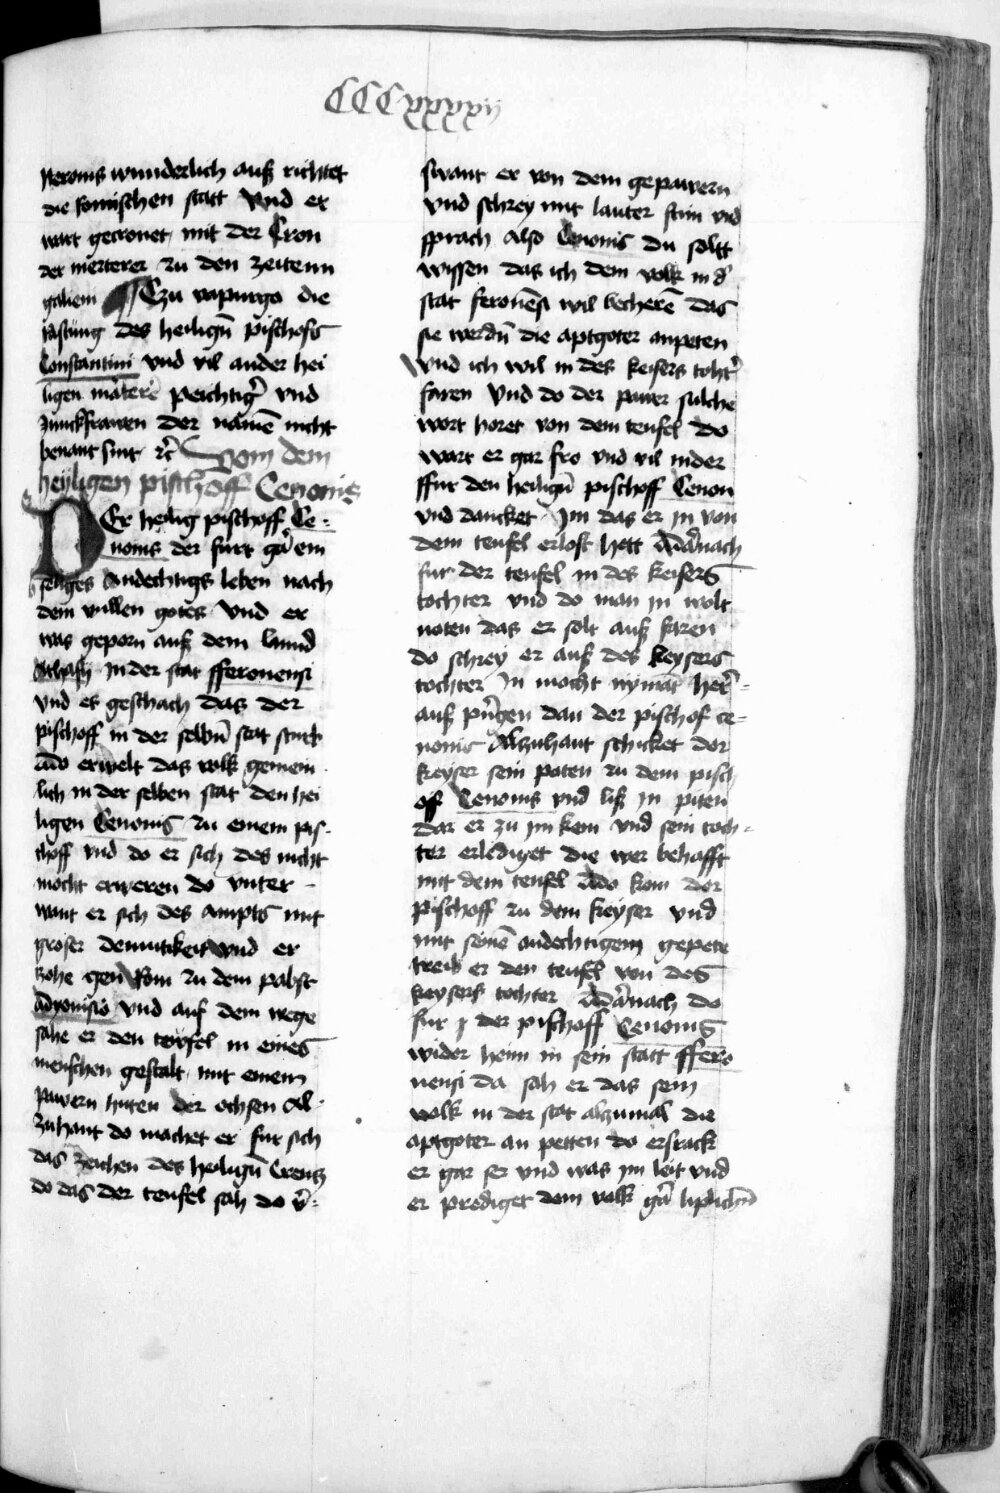 CCCxxxxij
Neronis wunderlich auß richtet
die Romischen statt Vnd er
wart gecronet mit der Cron
der merterer zu den zeitenn
galieni Czu vapurga die
rastung des heiligñ pischofs
Constantini vnd vil ander hei
ligen matere peichtigꝰ vnd
Junckfrawen der namē nicht
benant sint ꝛc̄ Vom dem
heyligen pischoff Cenonis
DEr heilig pischoff Ce-
nonis der furt gar ein
seliges Andechtigs leben nach
dem willen gotes Vnd er
was geporn auß dem lannd
in der stat fferonensi
vnd es geschach das der
pischoff in der selbñ stat starb
Ado erwelt das volk gemein
lich in der selben stat den hei
ligen Cenonis zu einem pis-
choff vnd do er sich des nicht
mocht erweren do vnter-
want er sich des ampts mit
groser demutikeit vnd er
zohe gen Rom zu dem pabst
Adyonisio vnd auf dem wege
sahe er den tewfel in eines
menschen gestalt mit einem
pawern huten der ochsen Al-
zuhant do machet er fur sich
das zeichen des heiligñ Creutz
do das der teufel sah do v̄-
swant er von dem gepawern
vnd schrey mit lauter stim vnd
sprach Also Cenonis du soltt
wissen das ich dem volk in d̉
stat feronēsi wil becherē das
sie werdñ die aptgoter anpeten
Vnd ich wil in des keisers toht̉
faren Vnd do der pawer sulche
wort horet von dem teufel do
wart er gar fro vnd vil nider
ffur den heiligñ pischoff Cenon
vnd dancket Im das er in von
dem teufel erlost hett Adarnach
fur der teufel in des keisers
tochter vnd do man in wolt
noten das er solt auß faren
do schrey er auß des keysers
tochter In mocht nymāt her-
auß pringen dan der pischof ce-
nonis Alzuhant schicket der
keyser sein poten zu dem pisch
off Cenonis vnd liß in piten
Dar er zu im kem vnd sein toch-
ter erlediget die wer behafft
mit dem teufel Ado kom der
pischoff zu dem keyser vnd
mit seinē andechtigem gepete
treib er den teufel von des
keysers tochter Adarnach do
fur der pischoff Cenonis
wider heim in sein statt ffero
nensi da sah er das sein
volk in der stat alzumal die
aptgoter an petten do ersrack
er gar ser vnd was im leit vnd
er prediget dem volk gar liplichñ